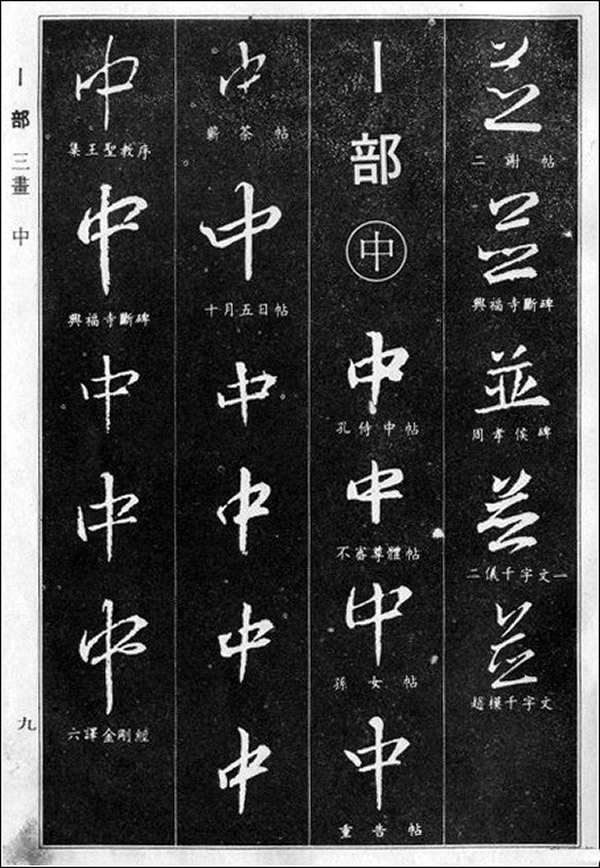 並
二謝帖
並
興福寺斷碑
並
周孝侯碑
並
二儀千字文一
並
趙模千字文
丨部
中
中
孔侍中帖
中
不審尊體帖
中
孫女帖
中
重告帖
中
蘄茶帖
中
十月五日帖
中
中
中
中
中
集王聖教序
中
興福寺斷碑
中
中
中
六譯金剛經
丨部 三畫 中
九